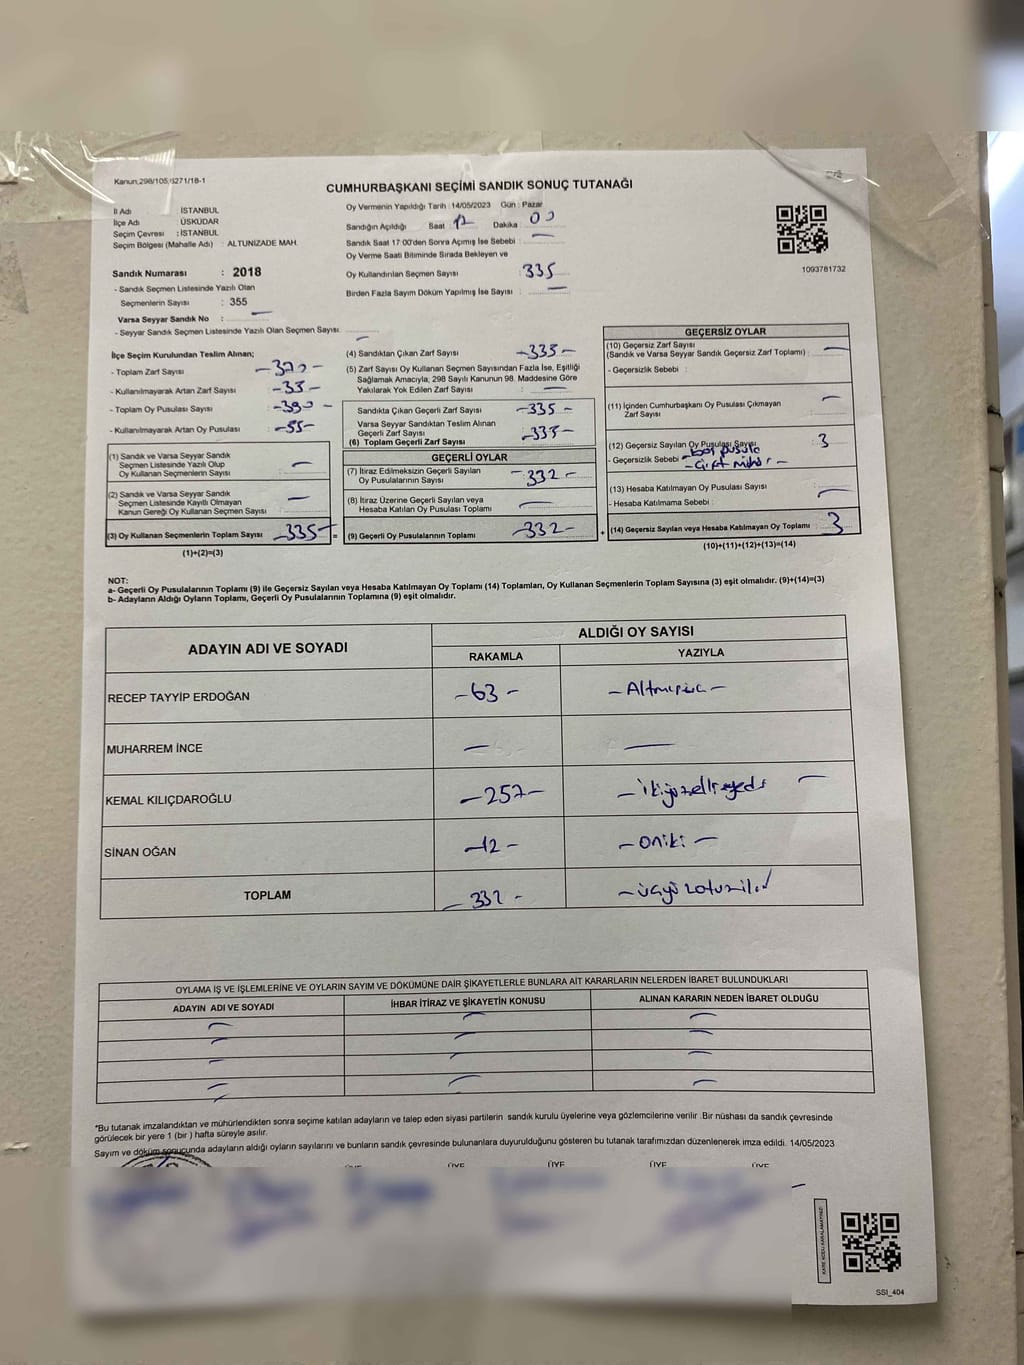 Kanun,298/105,6271/18-1
CUMHURBAŞKANI SEÇİMİ SANDIK SONUÇ TUTANAĞI
İl Adı : İSTANBUL
İlçe Adı : ÜSKÜDAR
Seçim Çevresi : İSTANBUL
Seçim Bölgesi (Mahalle Adı) : ALTUNİZADE MAH.
Sandık Numarası : 2018
- Sandık Seçmen Listesinde Yazılı Olan
Seçmenlerin Sayısı : 355
Varsa Seyyar Sandık No : —
- Seyyar Sandık Seçmen Listesinde Yazılı Olan Seçmen Sayısı: —
Oy Vermenin Yapıldığı Tarih : 14/05/2023 Gün : Pazar
Sandığın Açıldığı Saat 17 Dakika 00
Sandık Saat 17:00'den Sonra Açımış İse Sebebi : —
Oy Verme Saati Bitiminde Sırada Bekleyen ve
Oy Kullandırılan Seçmen Sayısı : 335
Birden Fazla Sayım Döküm Yapılmış İse Sayısı : —
1093781732
İlçe Seçim Kurulundan Teslim Alınan;
- Toplam Zarf Sayısı -370-
- Kullanılmayarak Artan Zarf Sayısı -35-
- Toplam Oy Pusulası Sayısı -390-
- Kullanılmayarak Artan Oy Pusulası -55-
(1) Sandık ve Varsa Seyyar Sandık
Seçmen Listesinde Yazılı Olup
Oy Kullanan Seçmenlerin Sayısı : —
(2) Sandık ve Varsa Seyyar Sandık
Seçmen Listesinde Kayıtlı Olmayan
Kanun Gereği Oy Kullanan Seçmen Sayısı : —
(3) Oy Kullanan Seçmenlerin Toplam Sayısı -335-
(1)+(2)=(3)
(4) Sandıktan Çıkan Zarf Sayısı -335-
(5) Zarf Sayısı Oy Kullanan Seçmen Sayısından Fazla İse, Eşitliği
Sağlamak Amacıyla; 298 Sayılı Kanunun 98. Maddesine Göre
Yakılarak Yok Edilen Zarf Sayısı : —
Sandıkta Çıkan Geçerli Zarf Sayısı -335-
Varsa Seyyar Sandıktan Teslim Alınan
Geçerli Zarf Sayısı
(6) Toplam Geçerli Zarf Sayısı -335-
GEÇERLİ OYLAR
(7) İtiraz Edilmeksizin Geçerli Sayılan
Oy Pusulalarının Sayısı : -332-
(8) İtiraz Üzerine Geçerli Sayılan veya
Hesaba Katılan Oy Pusulası Toplamı : —
= (9) Geçerli Oy Pusulalarının Toplamı -332-
GEÇERSİZ OYLAR
(10) Geçersiz Zarf Sayısı
(Sandık ve Varsa Seyyar Sandık Geçersiz Zarf Toplamı) : —
- Geçersizlik Sebebi :
(11) İçinden Cumhurbaşkanı Oy Pusulası Çıkmayan
Zarf Sayısı —
(12) Geçersiz Sayılan Oy Pusulası Sayısı 3
- Geçersizlik Sebebi - boş pusula
- Çift mühür -
(13) Hesaba Katılmayan Oy Pusulası Sayısı
- Hesaba Katılmama Sebebi : —
+ (14) Geçersiz Sayılan veya Hesaba Katılmayan Oy Toplamı 3
(10)+(11)+(12)+(13)=(14)
NOT:
a- Geçerli Oy Pusulalarının Toplamı (9) ile Geçersiz Sayılan veya Hesaba Katılmayan Oy Toplamı (14) Toplamları, Oy Kullanan Seçmenlerin Toplam Sayısına (3) eşit olmalıdır. (9)+(14)=(3)
b- Adayların Aldığı Oyların Toplamı, Geçerli Oy Pusulalarının Toplamına (9) eşit olmalıdır.
ADAYIN ADI VE SOYADI
ALDIĞI OY SAYISI
RAKAMLA YAZIYLA
RECEP TAYYİP ERDOĞAN -63- - Altmışüç -
MUHARREM İNCE — —
KEMAL KILIÇDAROĞLU -257- - ikiyüzelliyedi -
SİNAN OĞAN -12- - oniki -
TOPLAM - 332 - - üçyüzotuziki
OYLAMA İŞ VE İŞLEMLERİNE VE OYLARIN SAYIM VE DÖKÜMÜNE DAİR ŞİKAYETLERLE BUNLARA AİT KARARLARIN NELERDEN İBARET BULUNDUKLARI
ADAYIN ADI VE SOYADI İHBAR İTİRAZ VE ŞİKAYETİN KONUSU ALINAN KARARIN NEDEN İBARET OLDUĞU
*Bu tutanak imzalandıktan ve mühürlendikten sonra seçime katılan adayların ve talep eden siyasi partilerin sandık kurulu üyelerine veya gözlemcilerine verilir .Bir nüshası da sandık çevresinde
görülecek bir yere 1 (bir ) hafta süreyle asılır.
Sayım ve döküm sonucunda adayların aldığı oyların sayılarını ve bunların sandık çevresinde bulunanlara duyurulduğunu gösteren bu tutanak tarafımızdan düzenlenerek imza edildi. 14/05/2023
ÜYE ÜYE ÜYE ÜYE
KARE KODU KARALAMAYINIZ!
SSI_404